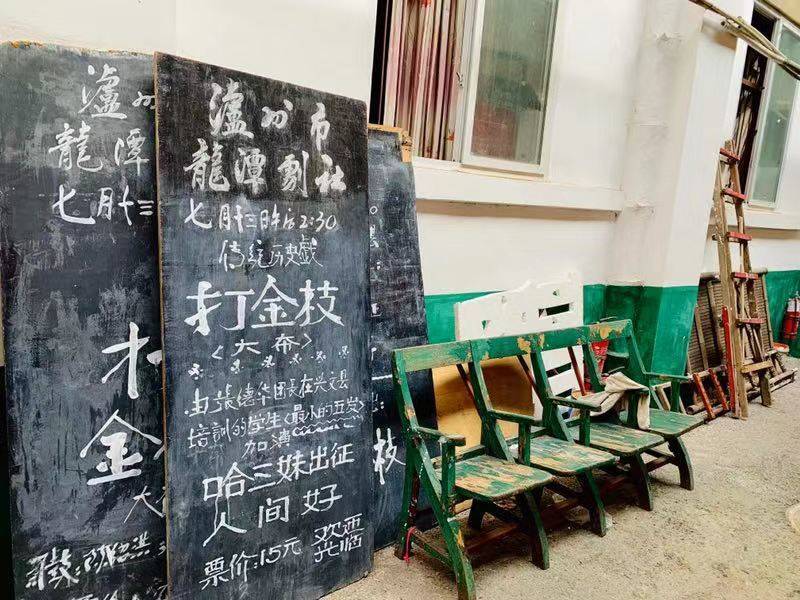 瀘州
龍潭
七月十三
金
大
瀘州市
龍潭剧社
七月十三日午后2:30
传统历史戏
打金枝
<大布>
由張德华团長在兴文县
培訓的学生<最小的五岁>
加演
哈三妹出征
人间好
票价:15元
欢迎光临
枝